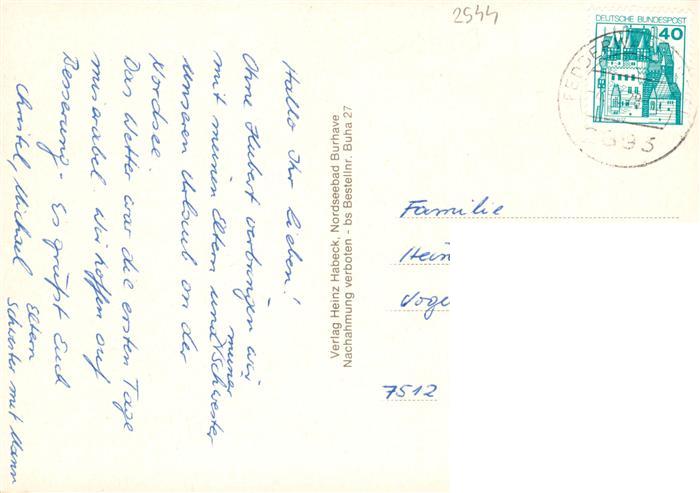 2544
DEUTSCHE BUNDESPOST
40
Hallo Ihr Lieben!
Ohne Hubert verbringen wir
mit meinen Eltern und meiner Schwester
unseren Urlaub an der
Nordsee.
Das Wetter war die ersten Tage
miserabel. Wir hoffen auf
Besserung. Es grüßt Euch
Christel, Michael Eltern
Schwester mit Mann
Verlag Heinz Habeck, Nordseebad Burhave
Nachahmung verboten - bs Bestellnr. Buha 27
Familie
7512